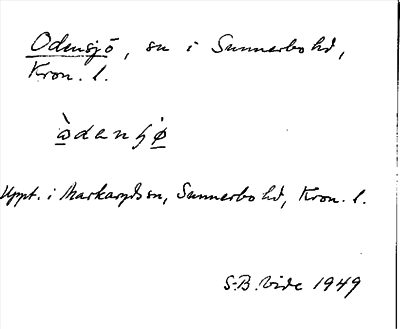 Odensjö, sn i Sunnerbo hd,
Kron. l.
ὼdenɧø̀
Uppt. i Markaryds sn, Sunnerbo hd, Kron. l.
S-B. Vide 1949